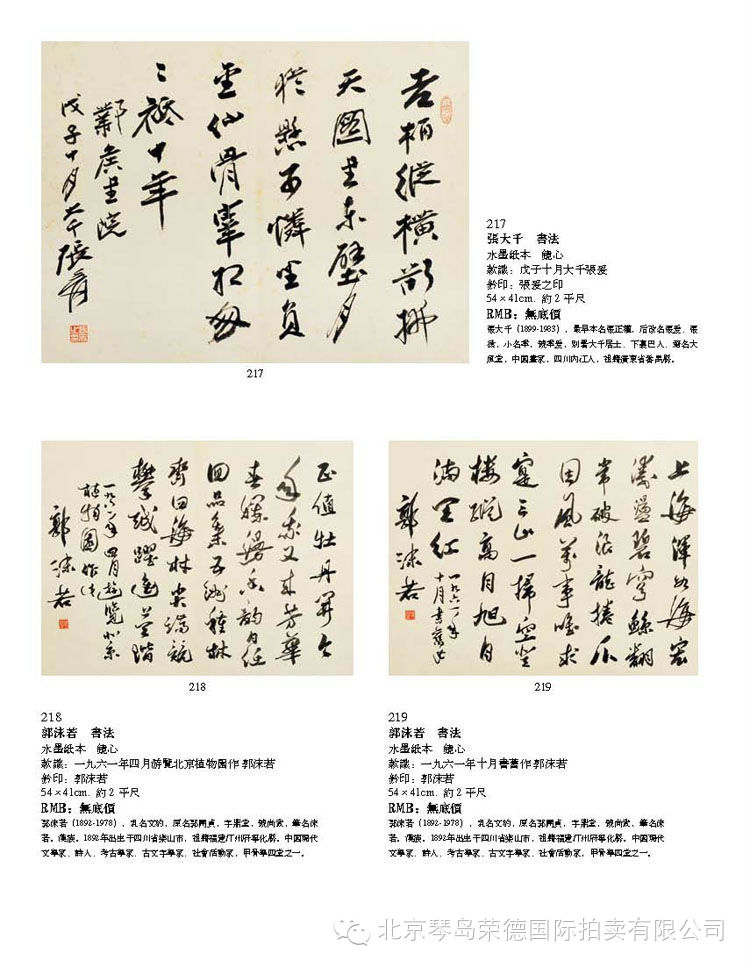 老柏縱橫拂
天圖書東壁月
將懸可憐坐負
靈仙骨宰相匆
匆祗十年
鄴侯書院
戊子十月大千張爰
217
217
張大千 書法
水墨紙本 鏡心
款識：戊子十月大千張爰
鈐印：張爰之印
54×41cm. 約2平尺
RMB：無底價
張大千（1899-1983），最早本名張正權，后改名張爰、張
猨，小名季，號季爰，別署大千居士、下裏巴人，齋名大
風堂，中国畫家，四川内江人，祖籍廣東省番禺縣。
正值牡丹開今
年我又來芳華
春爛縵香韻
品種林
齊四海尖端競
攀越躍進階
一九六一年四月遊覽北京
植物園作
郭沫若
218
上海渾如海宏
濤盪碧穹鯨翻
常破浪龍捲爪
因風萬事唯求
實三山一掃空登
樓縱高目旭日
滿天紅
一九六一年
十月書舊作
郭沫若
219
218
郭沫若 書法
水墨紙本 鏡心
款識：一九六一年四月游覽北京植物園作 郭沫若
鈐印：郭沫若
54×41cm. 約2平尺
RMB：無底價
郭沫若（1892-1978），乳名文豹，原名郭開貞，字鼎堂，號尚武，筆名沫
若。漢族，1892年出生于四川省樂山市，祖籍福建汀州府寧化縣。中国現代
文學家、詩人、考古學家、古文字學家、社會活動家，甲骨學四堂之一。
219
郭沫若 書法
水墨紙本 鏡心
款識：一九六一年十月書舊作 郭沫若
鈐印：郭沫若
54×41cm. 約2平尺
RMB：無底價
郭沫若（1892-1978），乳名文豹，原名郭開貞，字鼎堂，號尚武，筆名沫
若。漢族，1892年出生于四川省樂山市，祖籍福建汀州府寧化縣。中国現代
文學家、詩人、考古學家、古文字學家、社會活動家，甲骨學四堂之一。
北京琴岛荣德国际拍卖有限公司